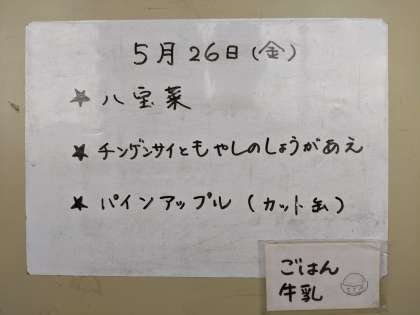 5月26日(金)
★ 八宝菜
★ チンゲンサイともやしのしょうがあえ
★ パインアップル(カット缶)
ごはん
牛乳